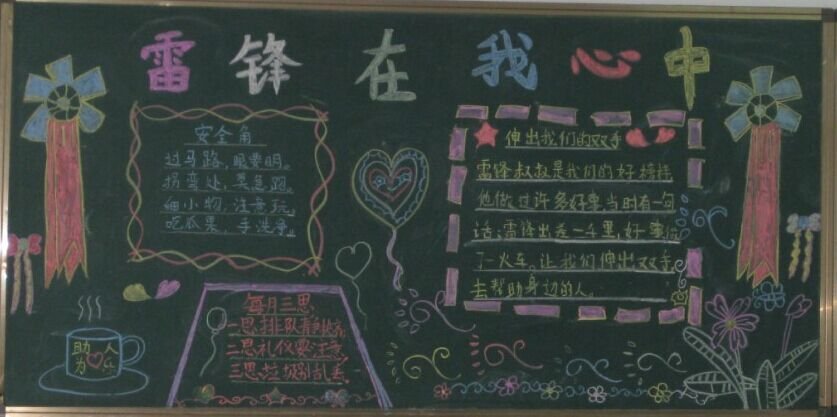 雷锋在我心中
安全角
过马路,眼要明。
拐弯处,莫急跑。
细小物,注意玩。
吃瓜果,手洗净。
伸出我们的双手
雷锋叔叔是我们的好榜样
他做过许多好事,当时有一句
话:雷锋出差一千里,好事做
了一火车。让我们伸出双手
去帮助身边的人。
每月三思
一思排队静
二思礼仪要注意
三思垃圾别乱丢
助人
为乐